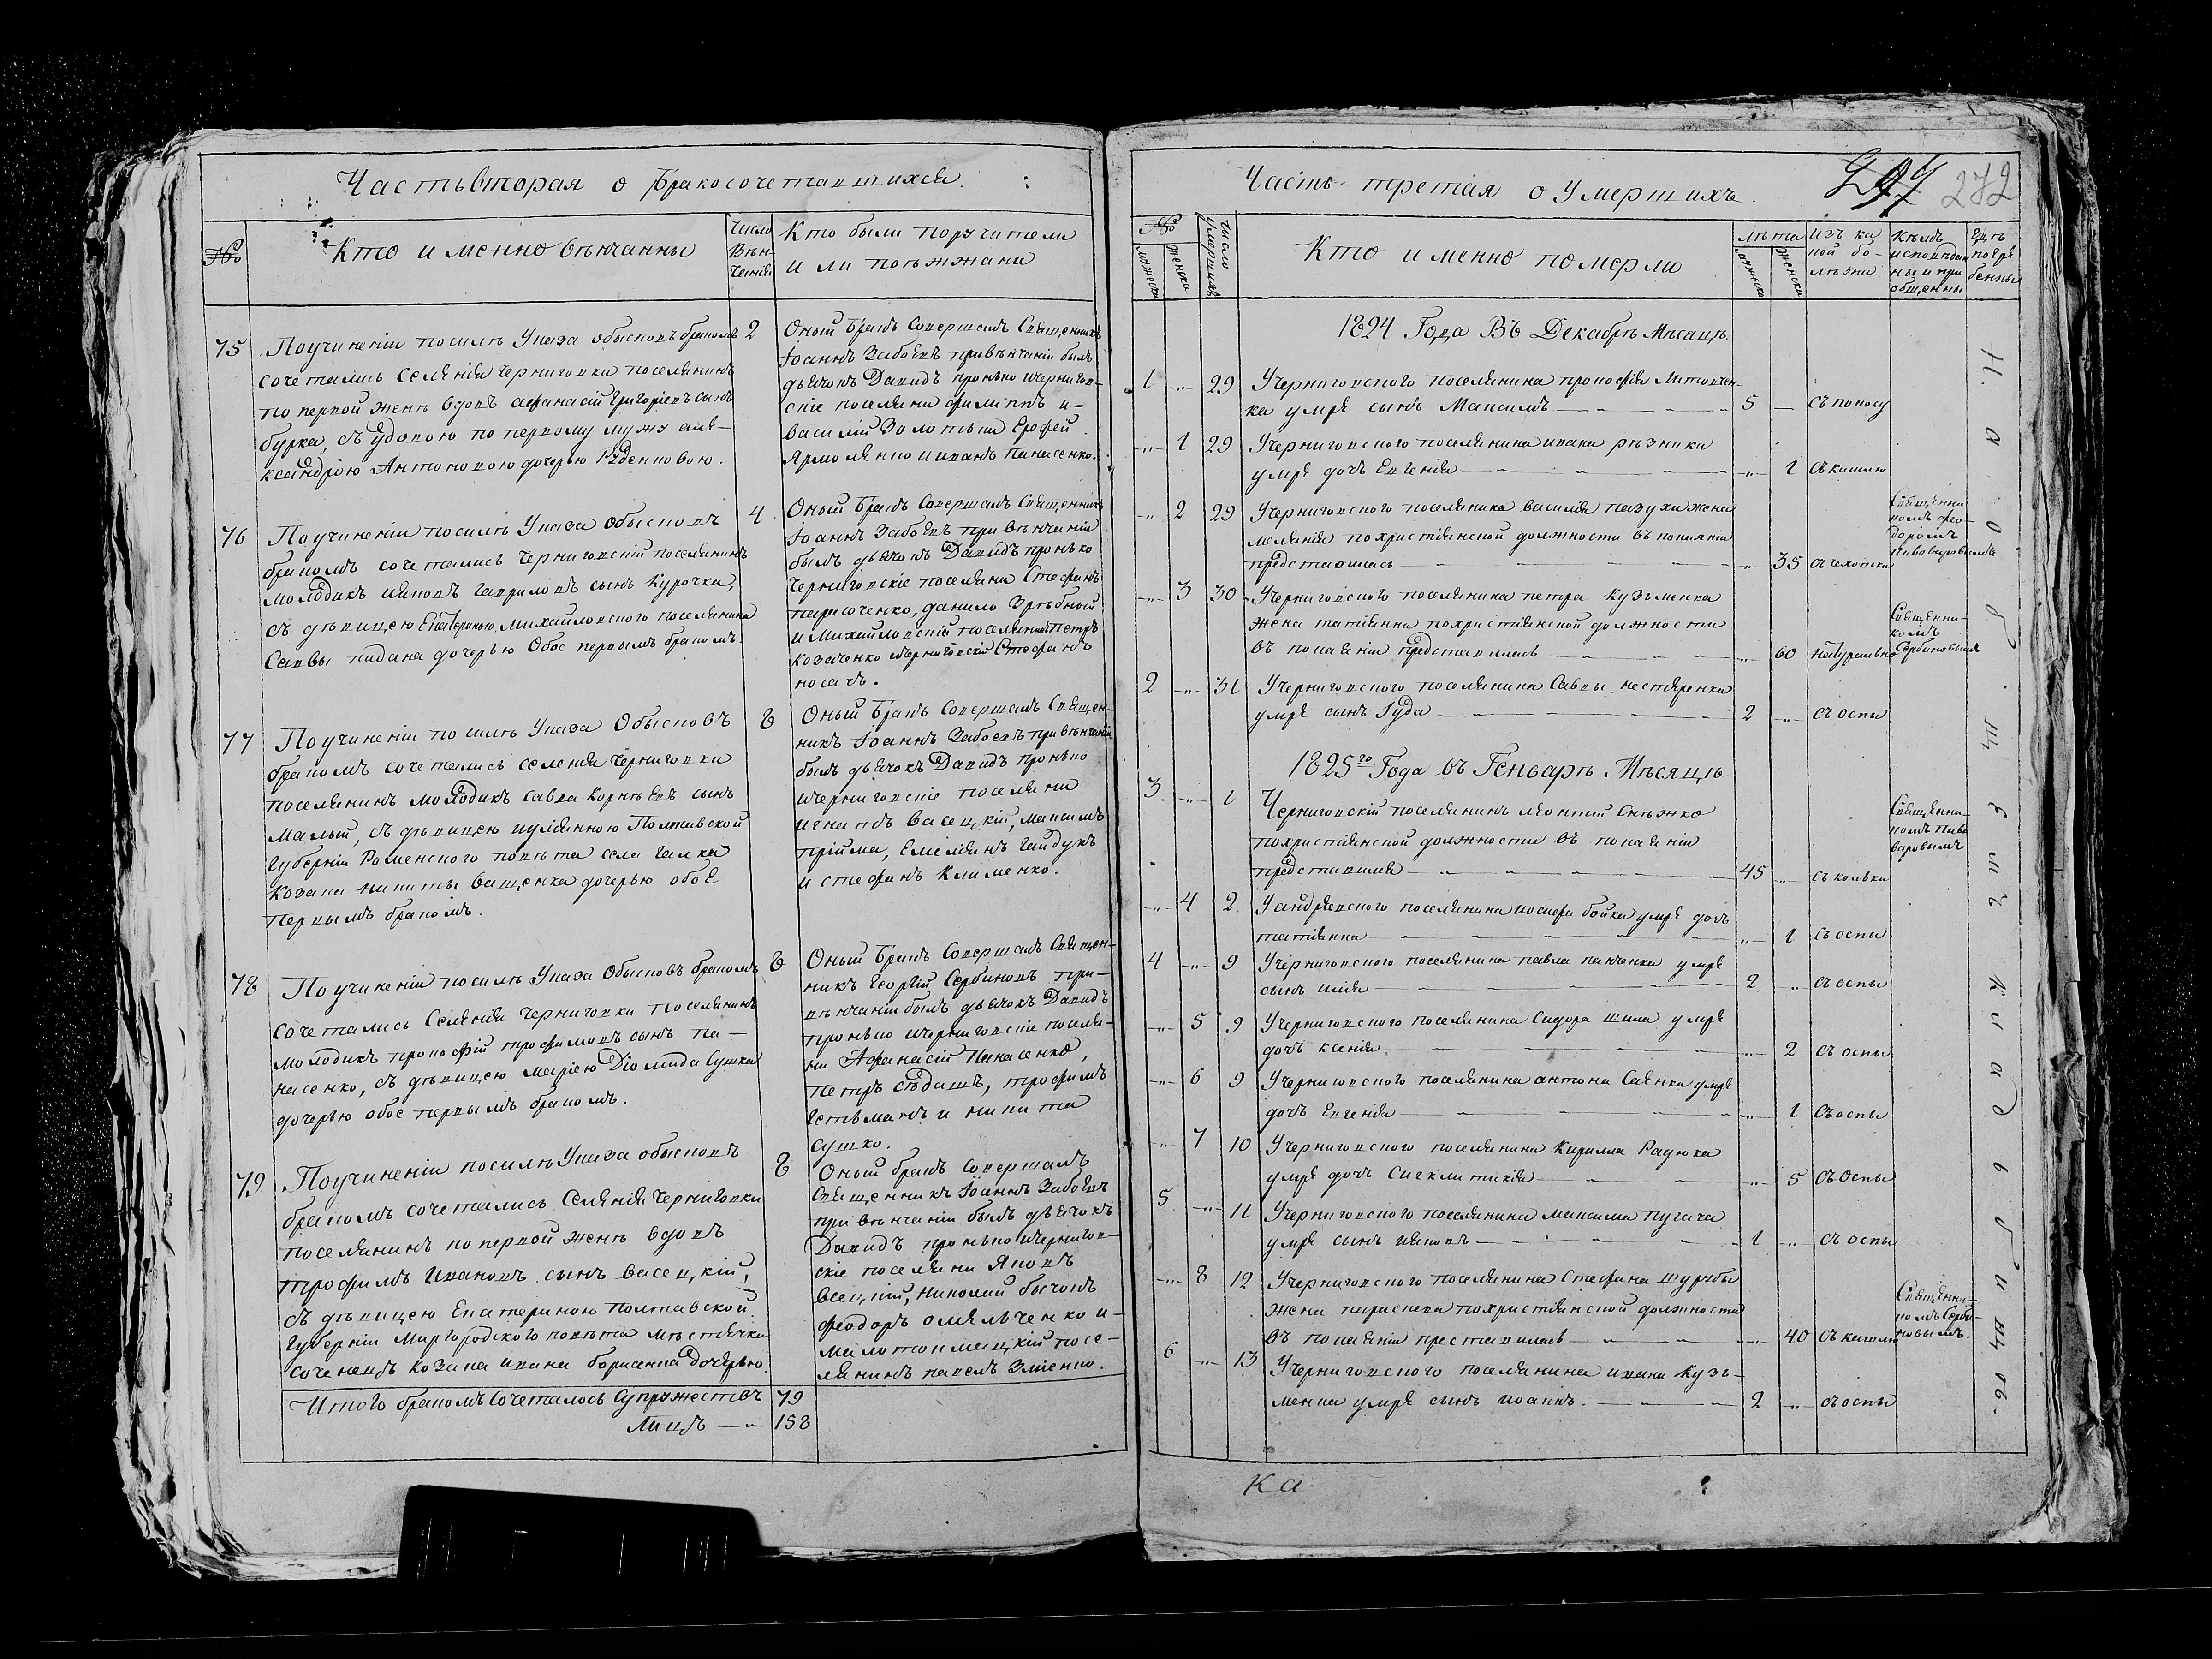 Часть вторая о бракосочетавшихся.
№
Кто именно венчанны
Число
Вѣн-
чения
Кто были поручители
и ли поѣзжани
75
По учинении по силѣ Указа обысковъ бракомъ
сочетались селения Черниговки поселянинъ
по первой женѣ вдовъ Афанасий Григориевъ сынъ
бурка, съ вдовою по первому мужу Але-
ксандрою Антоновою дочерью Руденковою.
2
Оный бракъ совершалъ Священникъ
Иоаннъ Забоевъ при вѣнчании былъ
дьячокъ Давидъ пронько и Чернигов-
ские поселяни Филиппъ и
Василий Золотыи Ерофей
Ярмоленко и Иванъ Панасенко.
76
По учинении по силѣ Указа обысковъ
бракомъ сочетались Черниговский поселянинъ
молодикъ Ияковъ Гавриловъ сынъ Курочка,
съ дѣвицею Екатериною, Михайловского поселянина
Саввы кидана дочерью Обое первымъ бракомъ.
4
Оный бракъ совершалъ Священникъ
Иоаннъ Забоевъ при вѣнчании
былъ дьячокъ Давидъ пронько
Черниговские поселяни Стефанъ
данило Здрѣбной
и Михайловский поселянинъ Петръ
Козаченко и Черниговский Стефанъ
носачъ.
77
По учинении по силѣ Указа Обысковъ
бракомъ сочетались селения Черниговки
поселянинъ молодикъ Савва Корнѣевъ сынъ
Малый, съ дѣвицею иулиянною Полтавской
Губернии Роменского повѣта села Галки
Козака никиты Ващенка дочерью обое
первымъ бракомъ.
8
Оный бракъ совершалъ Священ-
никъ Иоаннъ Забоевъ при вѣнчании
былъ дьячокъ Давидъ пронько
и Черниговские поселяни
Игнатъ Васецкий, Максимъ
прийма, Емелиянъ Гайдукъ
и Стефанъ Клименко.
78
По учинении по силѣ Указа Обысковъ бракомъ
Сочетались Селения Черниговки поселянинъ
молодикъ прокофий трофимовъ сынъ па-
насенко, съ дѣвицею Мариею Диомида Сушка
дочерью обое первымъ бракомъ.
8
Оный бракъ совершалъ Священ-
никъ Георгий Сербиновъ при
вѣнчании былъ дьячокъ Давидъ
пронько и Черниговские поселя-
ни Афанасий Панасенко,
Петръ Сѣдашъ, трофимъ
Гетьманъ и никита
Сушко.
79
По учинении по силѣ Указа обысковъ
бракомъ сочетались Селения Черниговки
поселянинъ по первой женѣ вдовъ
трофимъ Ивановъ сынъ Васецкий,
съ дѣвицею Екатериною Полтавской
Губернии Миргородского повѣта мѣстечка
Соченецъ Козака Ивана борисенка дочерью.
8
Оный бракъ совершалъ
Священникъ Иоаннъ Забоевъ
при вѣнчании былъ дьячокъ
Давидъ пронько и Чернигов-
ские поселяни Яковъ
Васецкий, Николай бычокъ
феодоръ омельченко и
малотокмацкий посе-
лянинъ павелъ Змиенко.
Итого бракомъ сочеталось супружествъ 79
Лицъ 158
Часть третия о умершихъ.
272
№
мужеска
женска
число умершихъ
Кто именно померли
лѣта
мужеска
женска
изъ ка
кой бо-
лѣзни
Кѣмъ
исповѣдан
ны и при
общенны
Гдѣ
погре
бенны
1824 Года Въ Декабрѣ Мѣсяцѣ.
1 29 У Черниговского поселянина прокофия Литовчен-
ка умре сынъ Максимъ 5 съ поносу
1 29 У Черниговского поселянина ивана рѣзника
умре дочь Евгения 1 съ кашлю
2 29 У Черниговского поселянина василия пазухи жена
мелания по християнской должности въ покаянии
представилась 35 съ чехотки
Священни
комъ фео-
доромъ
Пивоваровымъ
3 30 У Черниговского поселянина петра Кузьменка
жена татиянна по християнской должности
въ покаянии представилась 60 натурально
Священни-
комъ
Сербиновымъ
2 31 У Черниговского поселянина Саввы нестеренка
умре сынъ Иуда 2 съ оспы
1825го Года въ Генварѣ Мѣсяцѣ
3 1 Черниговский поселянинъ леонтий Снѣжко
по християнской должности въ покаянии
представился 45 съ кольки
Священни-
комъ Пиво
варовымъ
4 2 У андреевского поселянина иосифа бойка умре дочь
татиянна 1 съ оспы
4 9 У Черниговского поселянина павла панченка умре
сынъ илия 2 съ оспы
5 9 У Черниговского поселянина Сидора шила умре
дочь ксения 2 съ оспы
6 9 У Черниговского поселянина антона Саенка умре
дочь Евгения 1 съ оспы
7 10 У Черниговского поселянина Кирилла Радюка
умре дочь Сигклитикия 5 съ Оспы
5 11 У Черниговского поселянина максима пугача
умре сынъ ияковъ 1 съ оспы
8 12 У Черниговского поселянина Стефана шурубы
жена параскева по християнской должности
въ покаянии преставилась 40 съ кашлю
Священни-
комъ Серби-
новымъ.
6 13 У Черниговского поселянина ивана Кузь-
менка умре сынъ иоаннъ. 2 съ оспы
На общемъ кладбищѣ.
ка